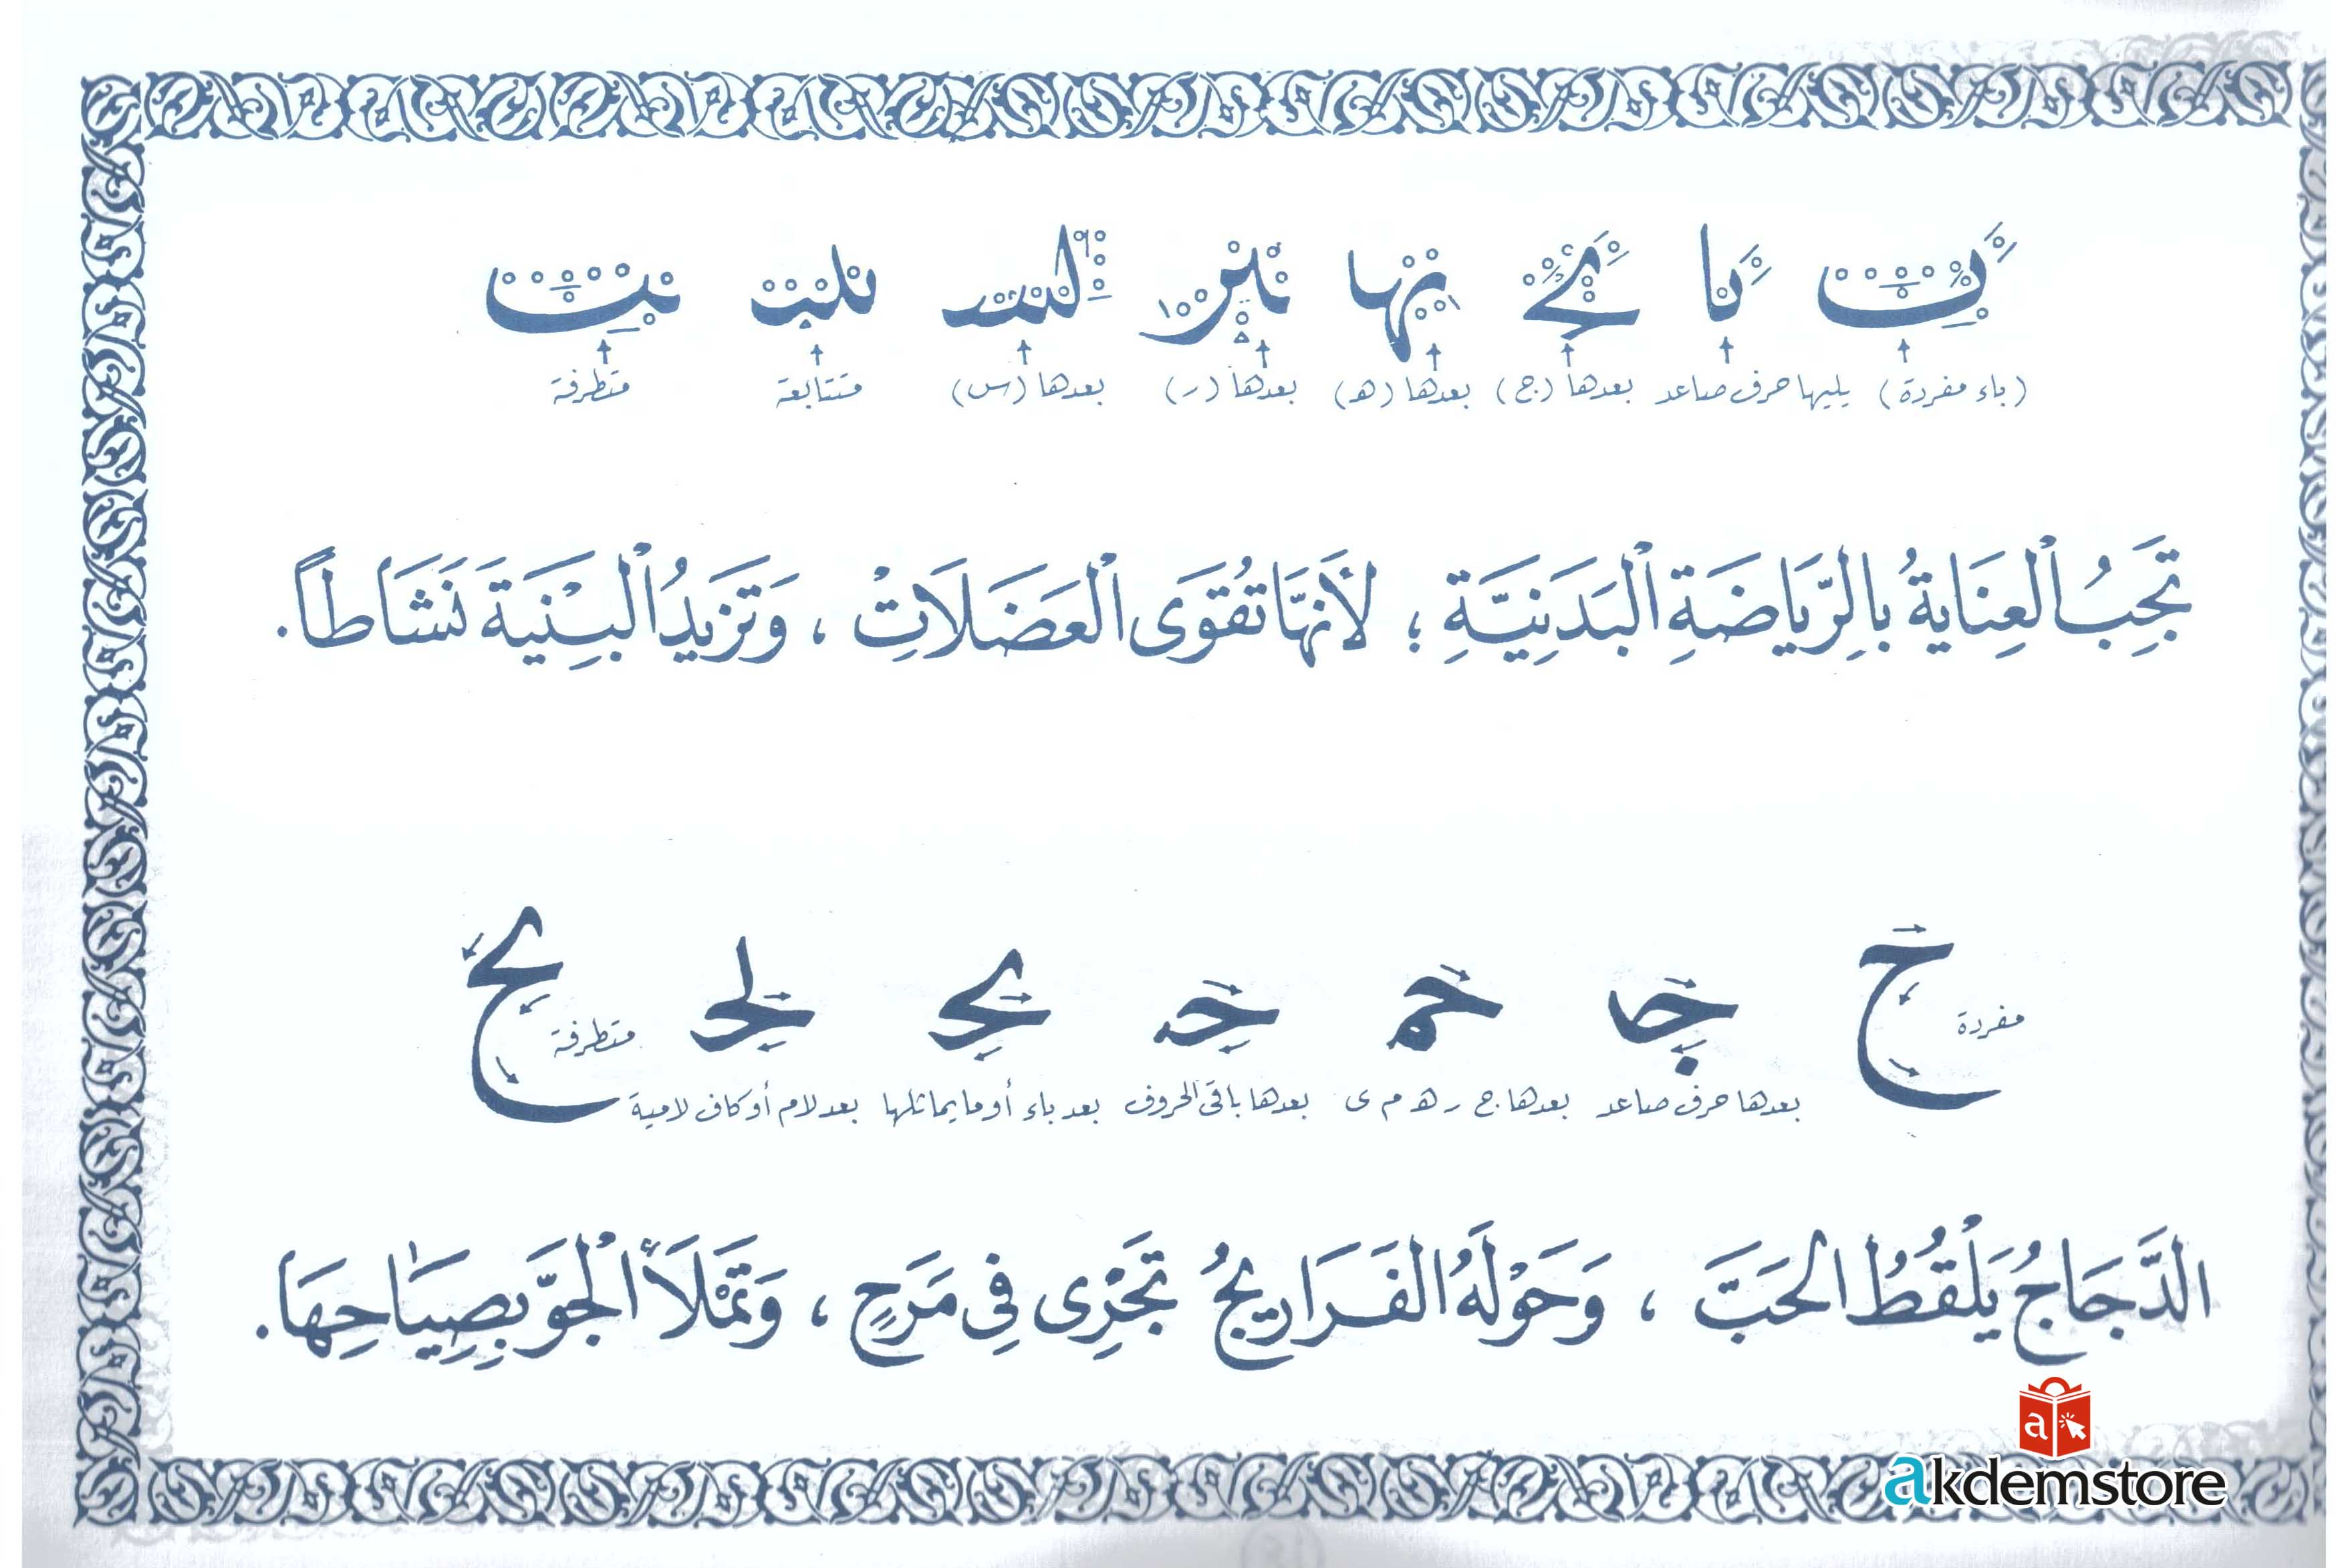 (باء مفردة) يليها حرف صاعد بعدها (ج) بعدها (هـ) بعدها (ر) بعدها (س) متتابعة متطرفة
تَجِبُ الْعِنَايَةُ بِالرِّيَاضَةِ الْبَدَنِيَّةِ ؛ لأَنَّهَا تُقَوِى الْعَضَلَاتِ ، وَتَزِيدُ الْبِنْيَةَ نَشَاطاً .
مفردة متطرفة
بعدها حرف صاعد بعدها ج ر هـ م ى بعدها باقى الحروف بعد باء أو ما يماثلها بعد لام أو كاف لامية
الدَّجَاجُ يَلْقُطُ الحَبَّ ، وَحَوْلَهُ الفَرَارِيجُ تَجْرِى فِى مَرَحٍ ، وَتَمْلَأُ الْجَوَّ بِصِيَاحِهَا .
a
akdemstore